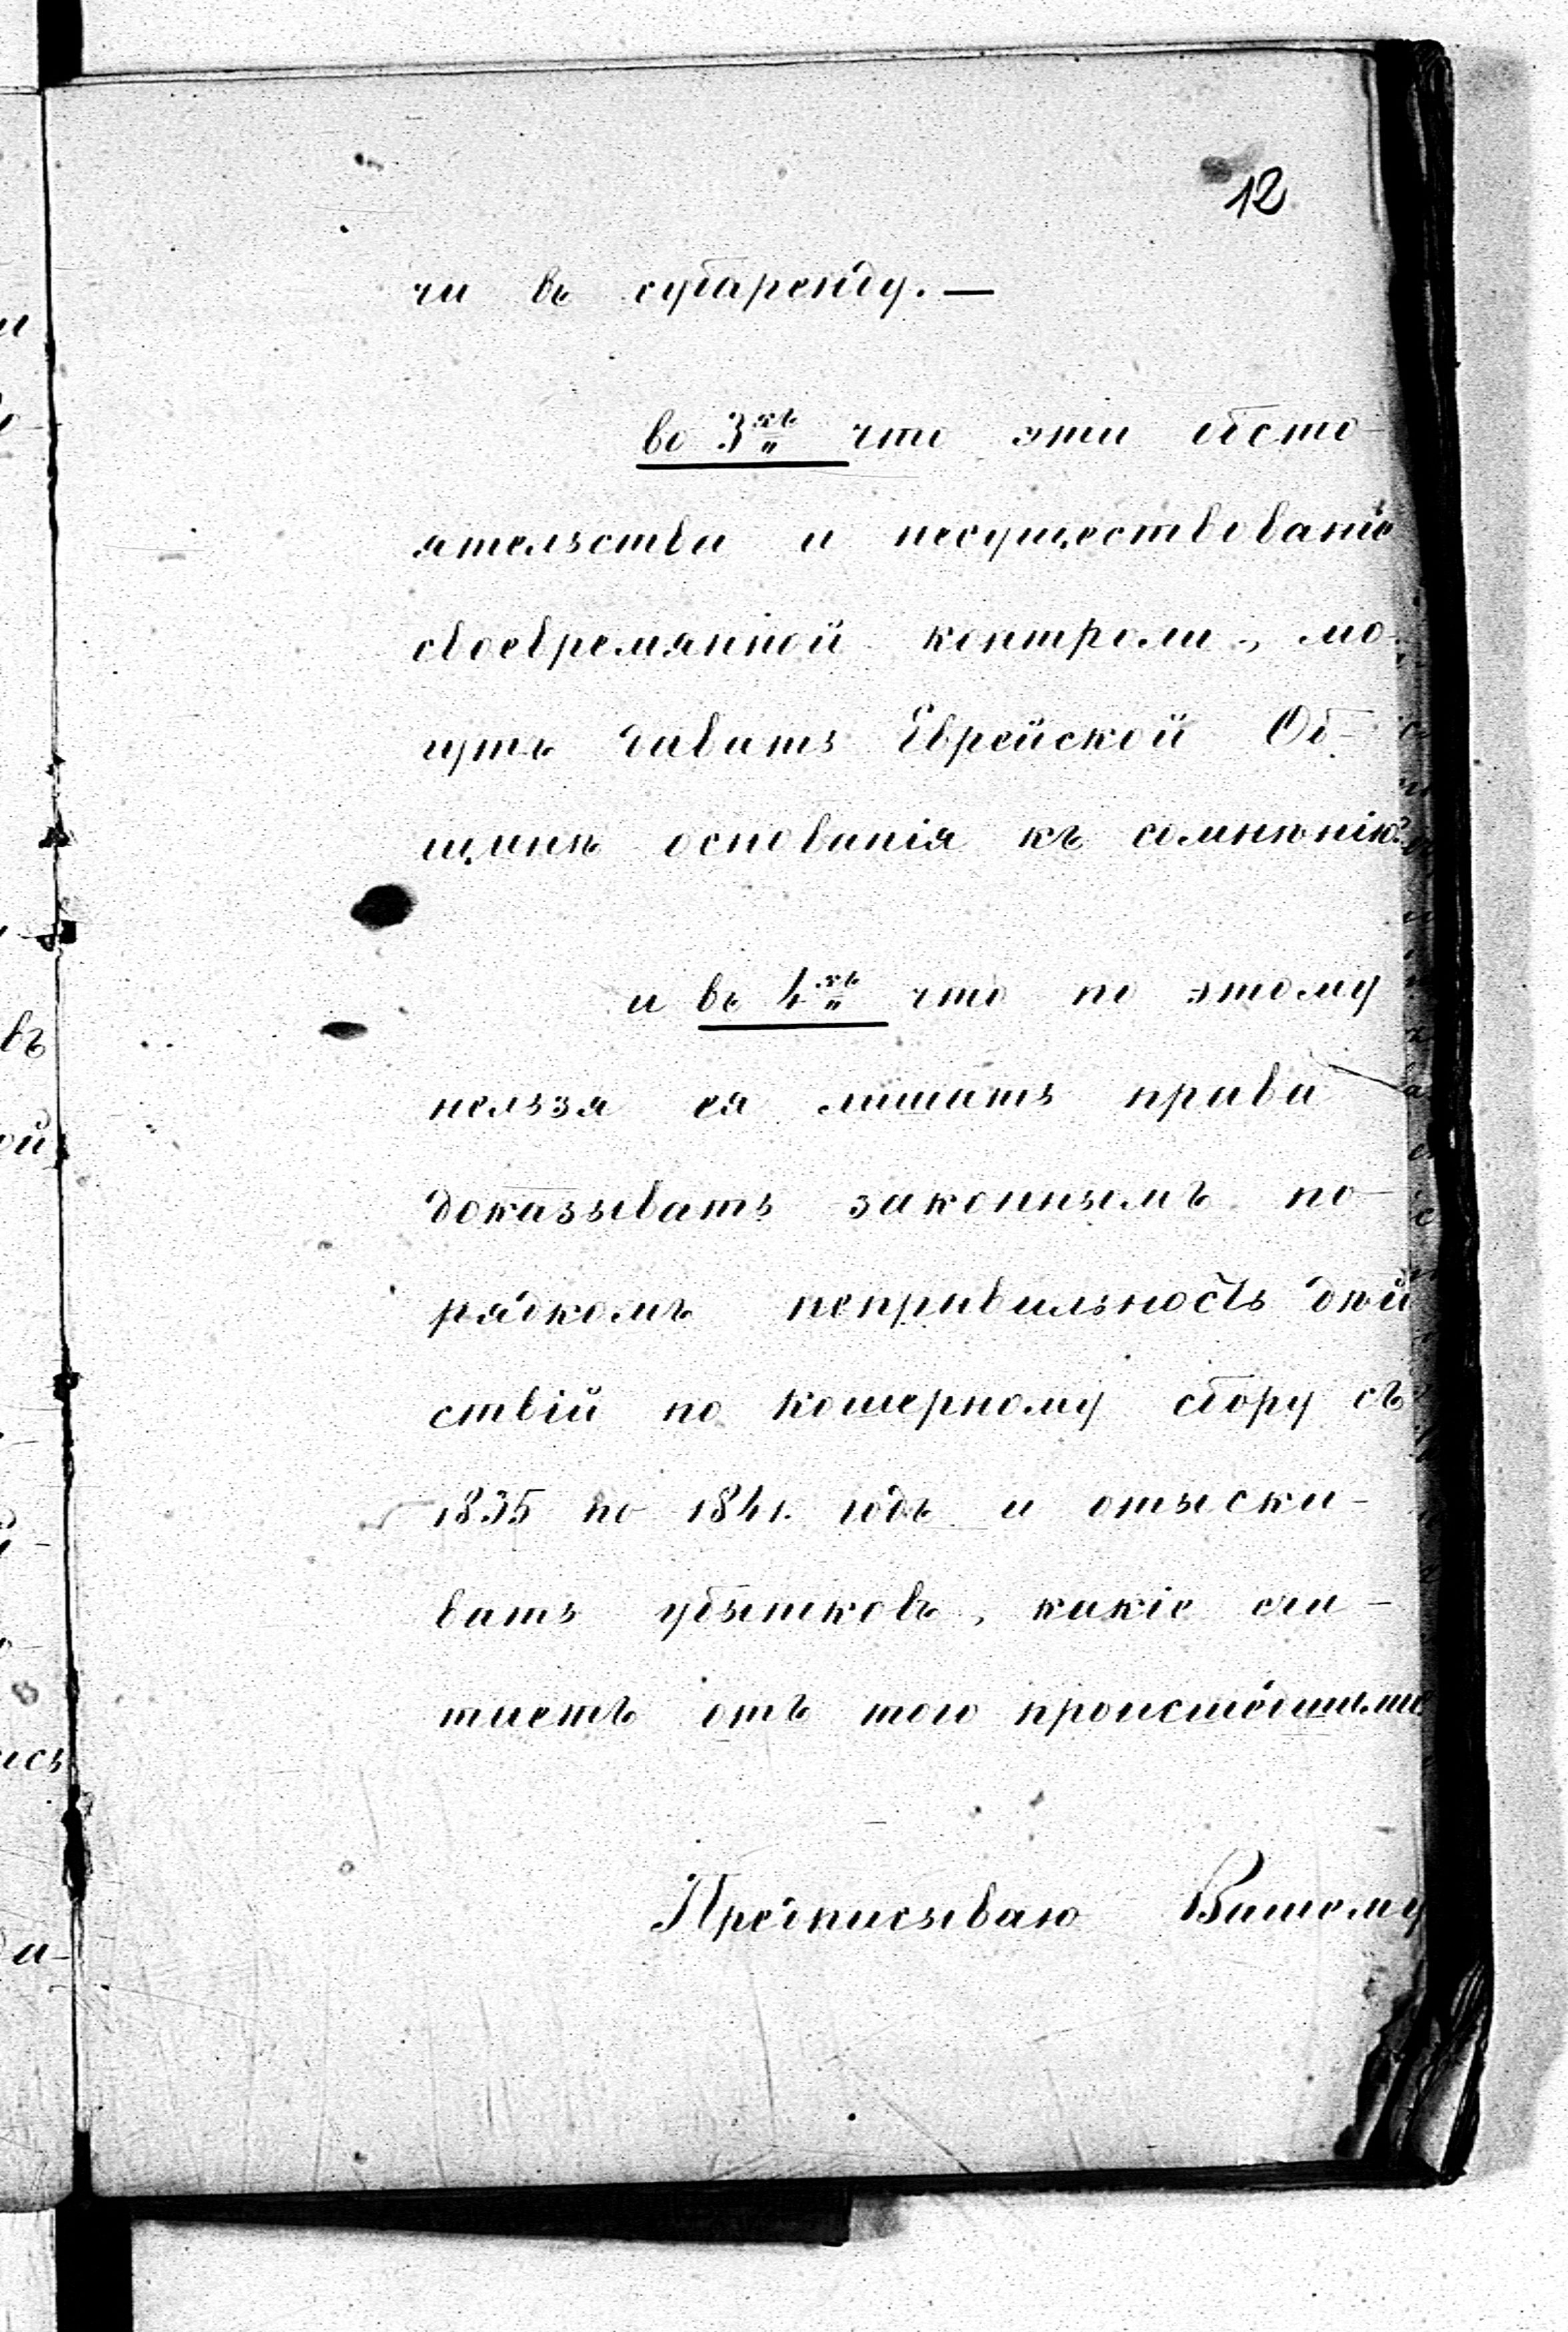 12
чи въ субаренду. —
во 3хъ что эти обсто-
ятельства и несуществованіе
своевремянной контроли, мо-
гутъ давать Еврейской Об-
щинѣ основанія къ сомнѣнію
и въ 4хъ что по этому
нельзя ея лишать права
доказывать законнымъ по-
рядкомъ неправильность дѣй
ствій по кошерному сбору съ
1835 по 1841. годъ и отыски-
вать убытковъ, какіе счи-
таетъ отъ того происшедшими
Предписываю Вашему